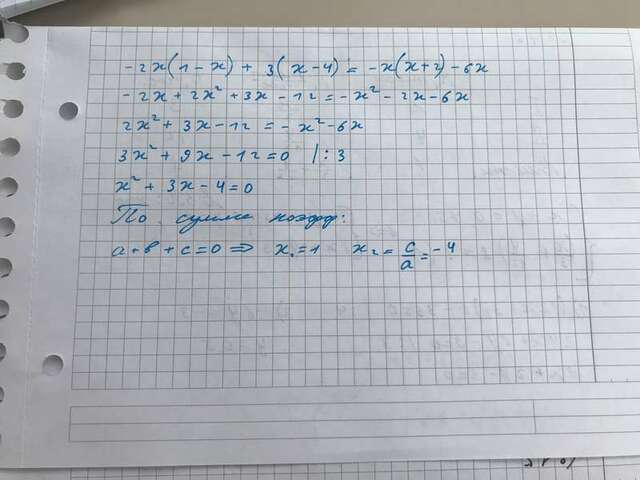 -2x(1-x) + 3(x-4) = -x(x+2) - 6x
-2x + 2x² + 3x - 12 = -x² - 2x - 6x
2x² + 3x - 12 = -x² - 6x
3x² + 9x - 12 = 0 | : 3
x² + 3x - 4 = 0
По сумме коэфф:
a + b + c = 0 => x₁ = 1 x₂ = c/a = -4